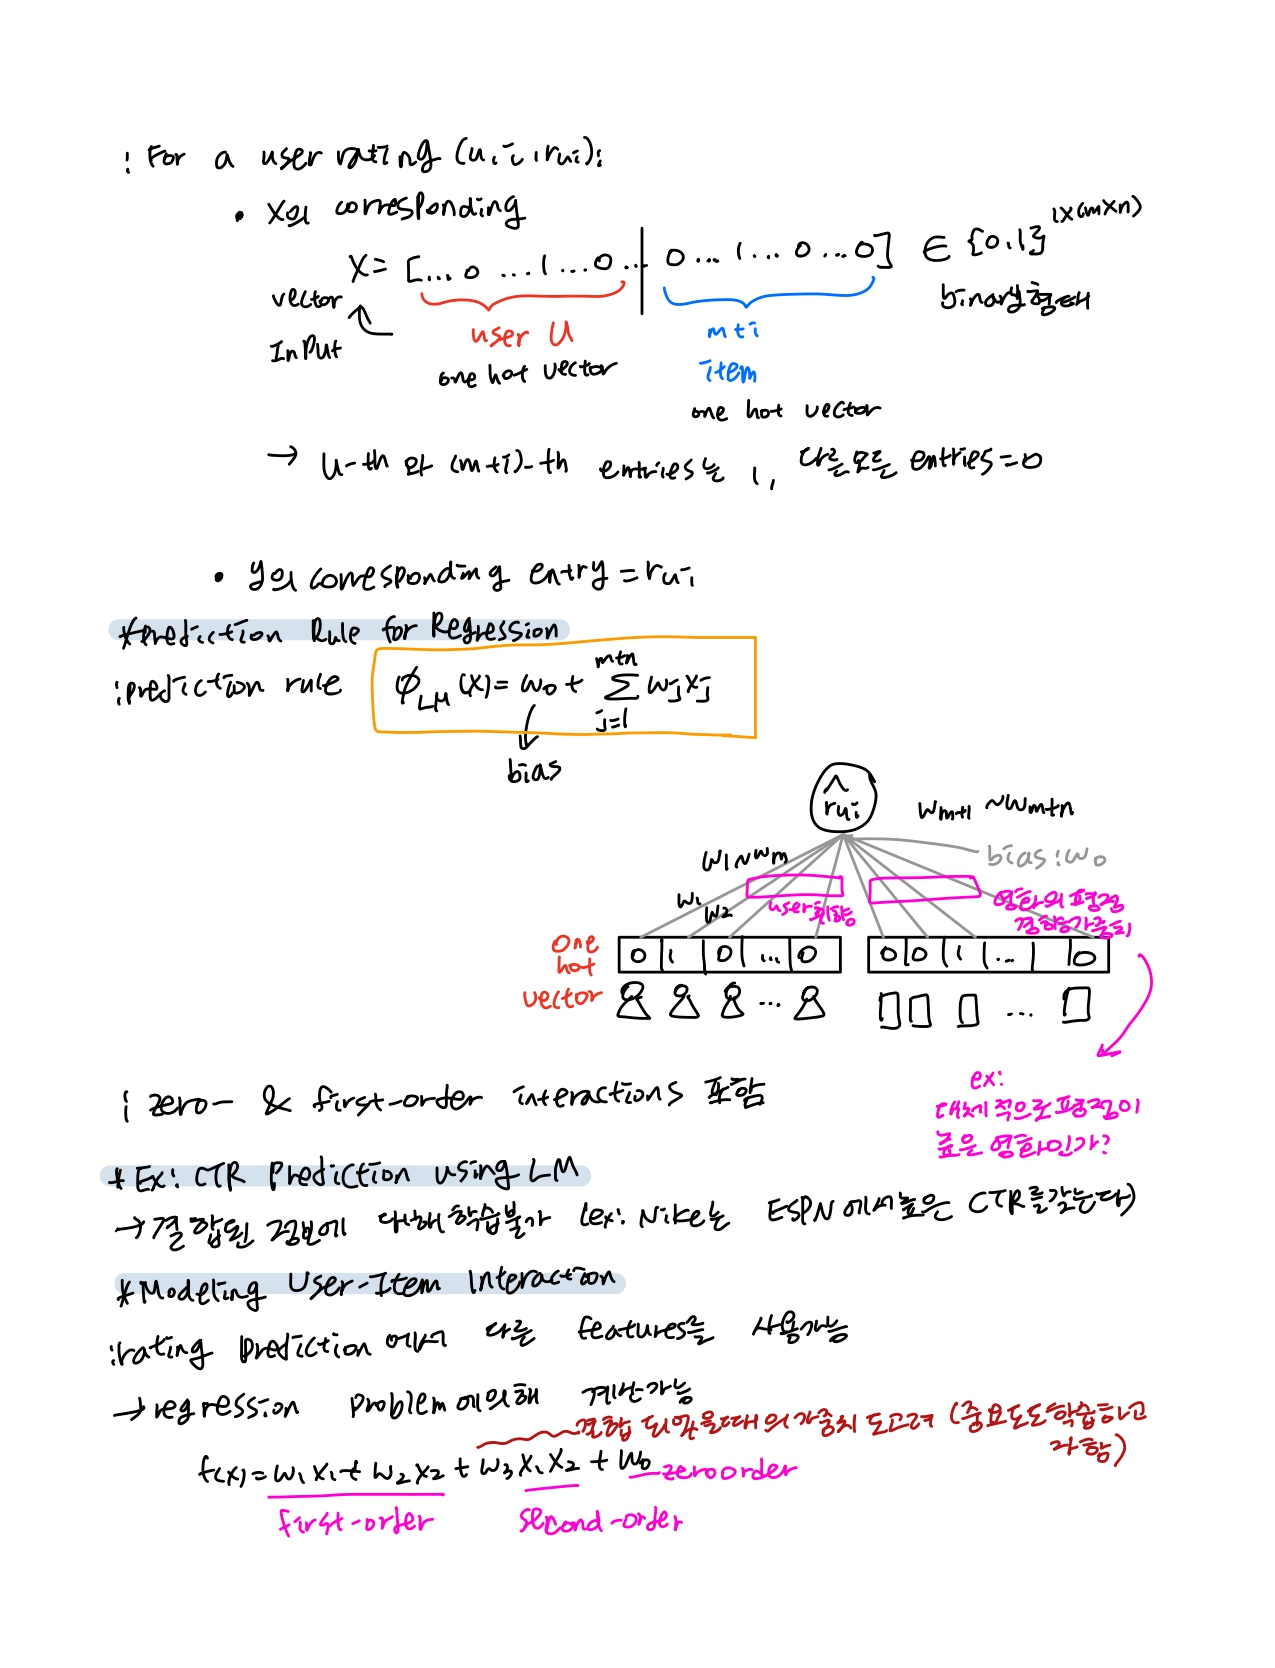 : For a user rating (u, i, rui):
• X의 corresponding
X = [... 0 ... 1 ... 0 ... | 0 ... 1 ... 0 ... 0] ∈ {0,1}^1x(m×n)
vector
InPut
user U
one hot vector
m+i
item
one hot vector
binary형태
→ U-th 와 (m+i)-th entries는 1, 다른모든 entries=0
• y의 corresponding entry = rui
*Prediction Rule for Regression
:prediction rule
ϕLM (X) = w0 + m+n ∑ j=1 wj xj
bias
r̂ui
w1~wm
wm+1 ~wm+n
bias : w0
w1
w2
user취향
영화의 평점
경향 가중치
one
hot
vector
0 1 0 ... 0
0 0 1 ... 0
...
...
ex:
대체적으로평점이
높은 영화인가?
: zero- & first-order interactions 포함
* Ex: CTR Prediction using LM
→ 결합된 정보에 대해 학습불가 (ex: Nike는 ESPN에서높은 CTR를갖는다)
*Modeling User-Item Interaction
:rating prediction에서 다른 features를 사용가능
→ regression problem에의해 계산가능
결합 되었을때의 가중치 도고려 (중요도도학습하고
자함)
f(x) = w1 x1 + w2 x2 + w3 x1 x2 + w0
zero order
first-order
second-order